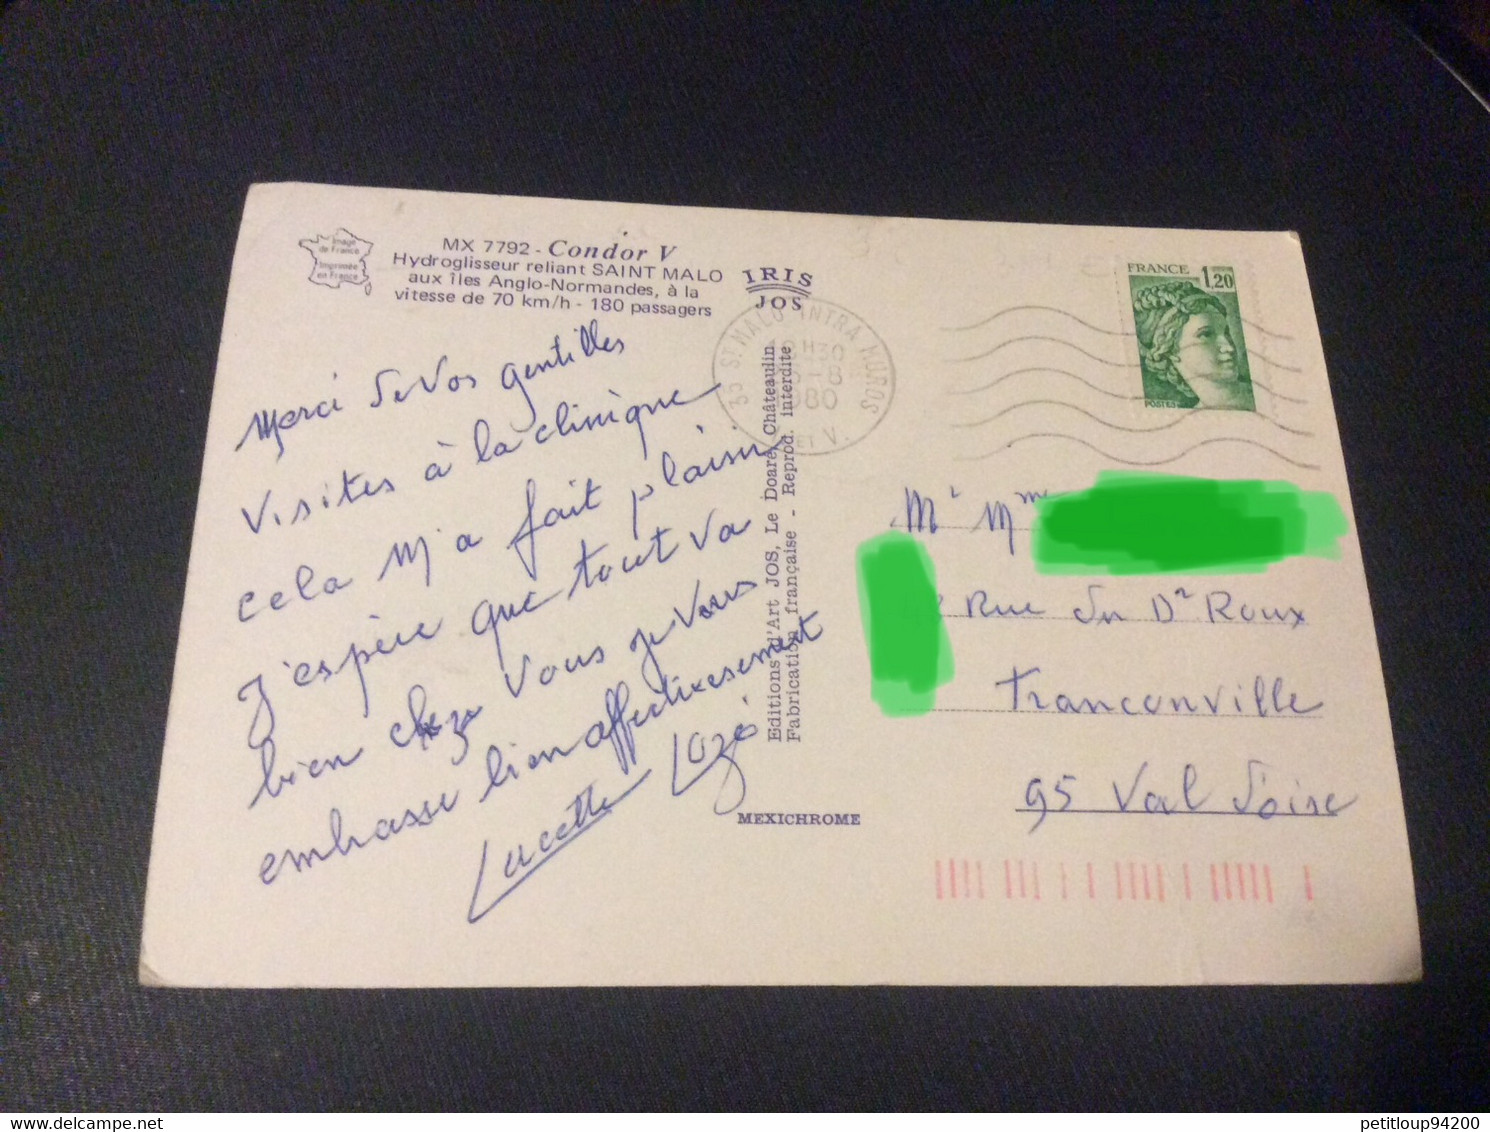 Image
de France
Imprimée
en France
MX 7792 - Condor V
Hydroglisseur reliant SAINT MALO
aux îles Anglo-Normandes, à la
vitesse de 70 km/h - 180 passagers
IRIS
JOS
Merci de Vos gentilles
Visites à la clinique
cela m'a fait plaisir
J'espère que tout va
bien chez Vous je Vous
embrasse bien affectueusement
Lucette Lozé
Editions d'Art JOS, Le Doaré, Châteaulin
Fabrication française - Reprod. interdite
MEXICHROME
35 ST MALO INTRA MUROS
H30
1980
ET V.
FRANCE 1,20
POSTES
Mr Mme
Rue du Dr Roux
Franconville
95 Val d'oise
petitloup94200